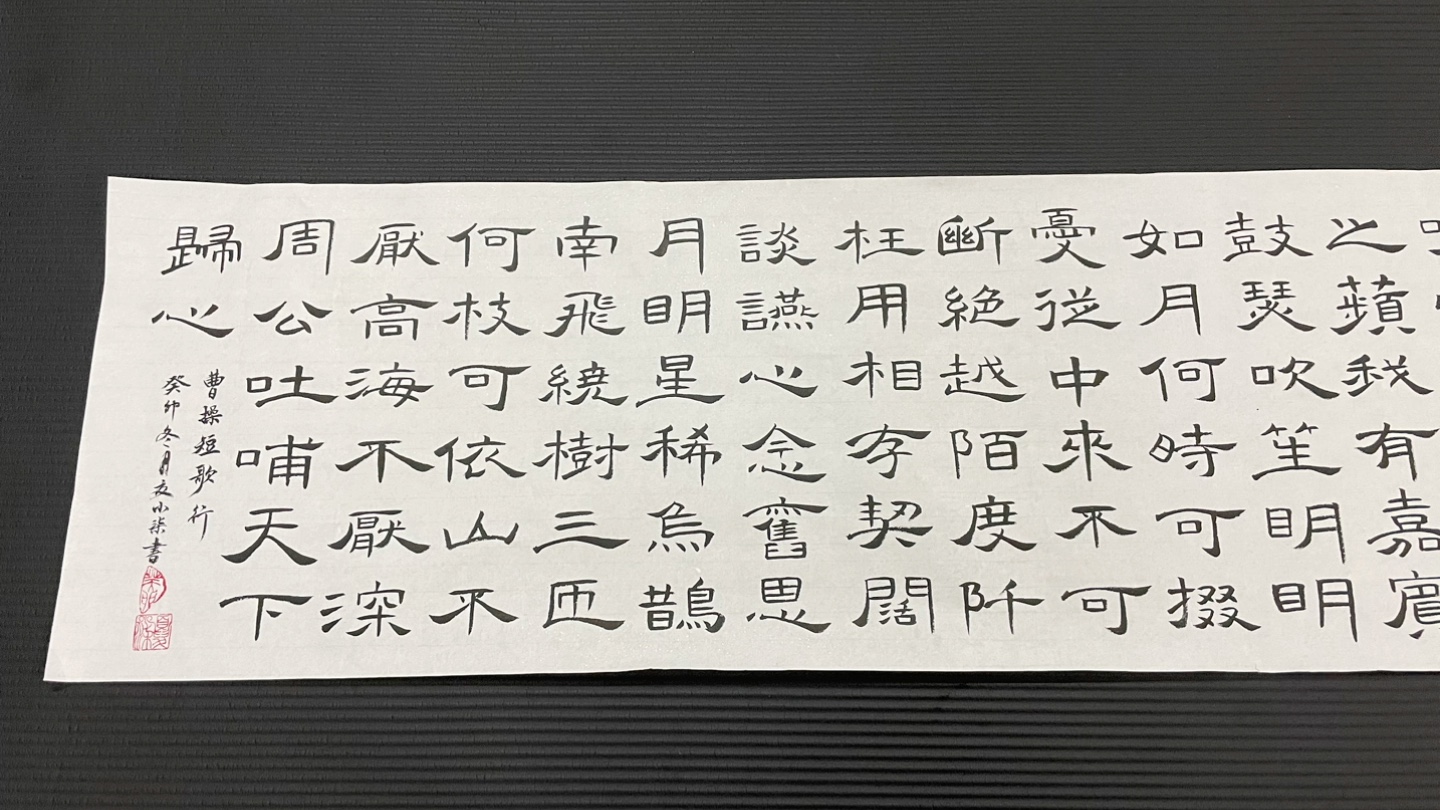 之蘋我有嘉賓
鼓瑟吹笙明明
如月何時可掇
憂從中來不可
斷絕越陌度阡
枉用相存契闊
談讌心念舊恩
月明星稀烏鵲
南飛繞樹三匝
何枝可依山不
厭高海不厭深
周公吐哺天下
歸心
曹操短歌行
癸卯冬月小柒書